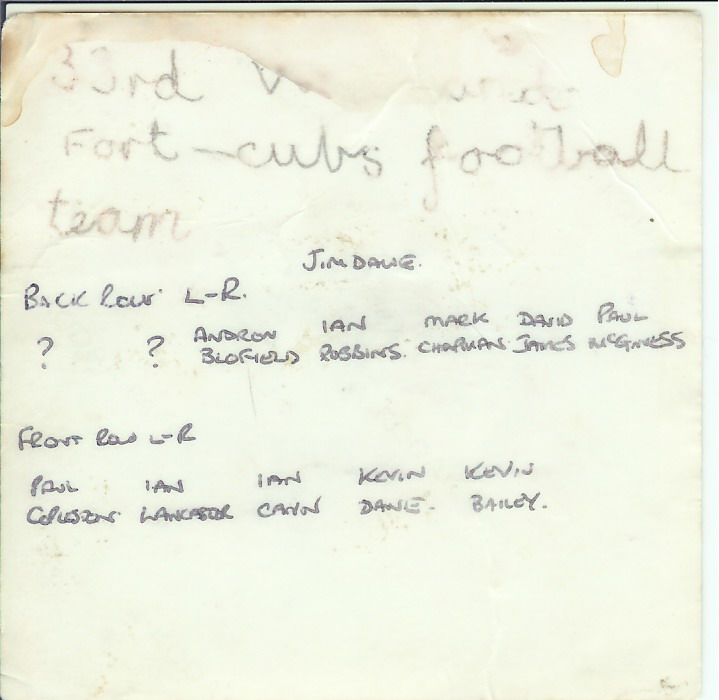 33rd
Fort - cubs football
team
JIM DAWE.
BACK ROW L-R.
? ? ANDREW IAN MARK DAVID PAUL
BLOFIELD ROBBINS. CHAPMAN JAMES McGINESS
FRONT ROW L-R
PAUL IAN IAN KEVIN KEVIN
LANCASTER CANN DAWE. BAILEY.